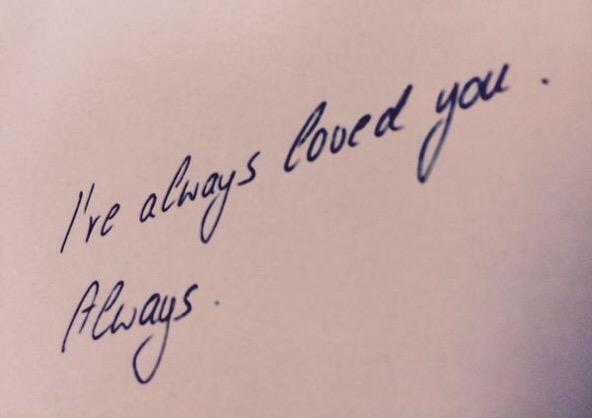 I've always loved you.
Always.